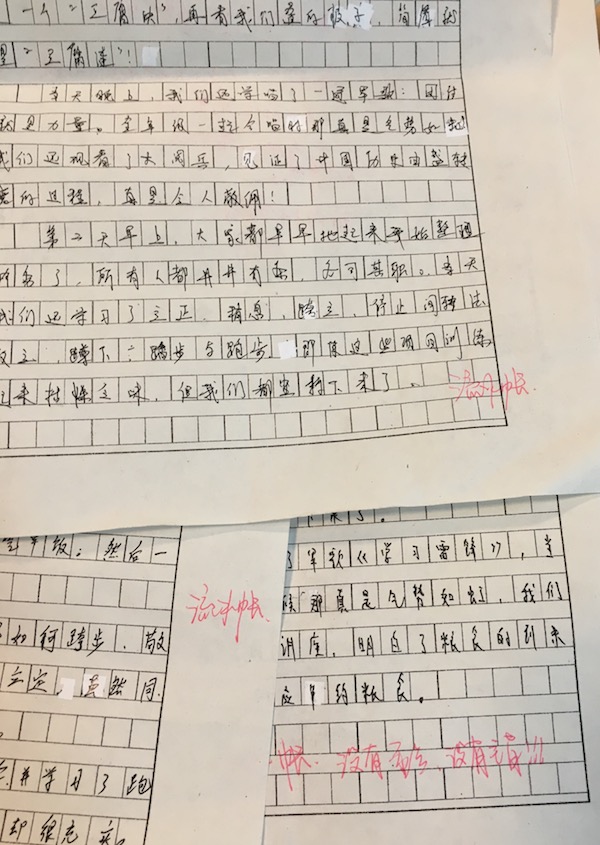 一个"豆腐块",再看我们叠的被子,简直就
是"豆腐渣"!
当天晚上,我们还学唱了一首军歌:团结
就是力量。全年级一起合唱时那真是气势如虹
我们还观看了大阅兵,见证了中国历史由盛转
的过程,真是令人敬佩!
第二天早上,大家都早早地起来开始整理
内务了,所有人都井井有条,各司其职。当天
我们还学习了立正,稍息,跨立,停止间转法
敬礼,蹲下,踏步与跑步,即使这些项目训练
起来枯燥乏味,但我们都坚持下来了。
流水帐.
年级;然后一
如何踏步、敬
立定,虽然同
并学习了跑
却很充实。
流水帐.
了军歌《学习雷锋》,当
候那真是气势如虹,我们
讲座,明白了粮食的到来
应节约粮食。
帐.没有 没有主旨!!!